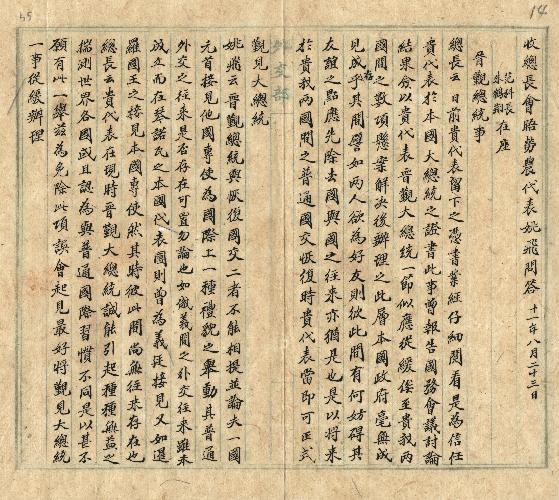 14
收總長會晤勞農代表姚飛問答 十一年八月二十三日
范科長
朱鶴翔 在座
晉觀總統事
總長云日前貴代表留下之憑書業經仔細閱看是為信任
貴代表於本國大總統之證書此事曾報告國務會議討論
結果僉以貴代表晉觀大總統一節似應從緩俟至貴我兩
國間之數項懸案解決後辦理之此層本國政府毫無成
見或存乎其間譬如兩人欲為好友則彼此間有何妨碍其
友誼之點應先除去國與國之往來亦猶是也是以將來
於貴我兩國間之普通國交恢復時貴代表當即可正式
觀見大總統
外交部
姚飛云晉觀總統與恢復國交二者不能相提並論夫一國
元首接見他國專使為國際上一種禮貌之舉動其普通
外交之往來是否存在可置勿論也如俄義間之外交往來雖未
成立而在熱諾瓦之本國代表團則曾為義廷接見又如暹
羅國王之接見本國專使然其時彼此間尚無往來存在也
總長云貴代表在現時晉觀大總統誠能引起種種無益之
揣測世界各國或且認為與普通國際習慣不同是以甚不
願有此一舉茲為免除此項誤會起見最好將觀見大總統
一事從緩辦理